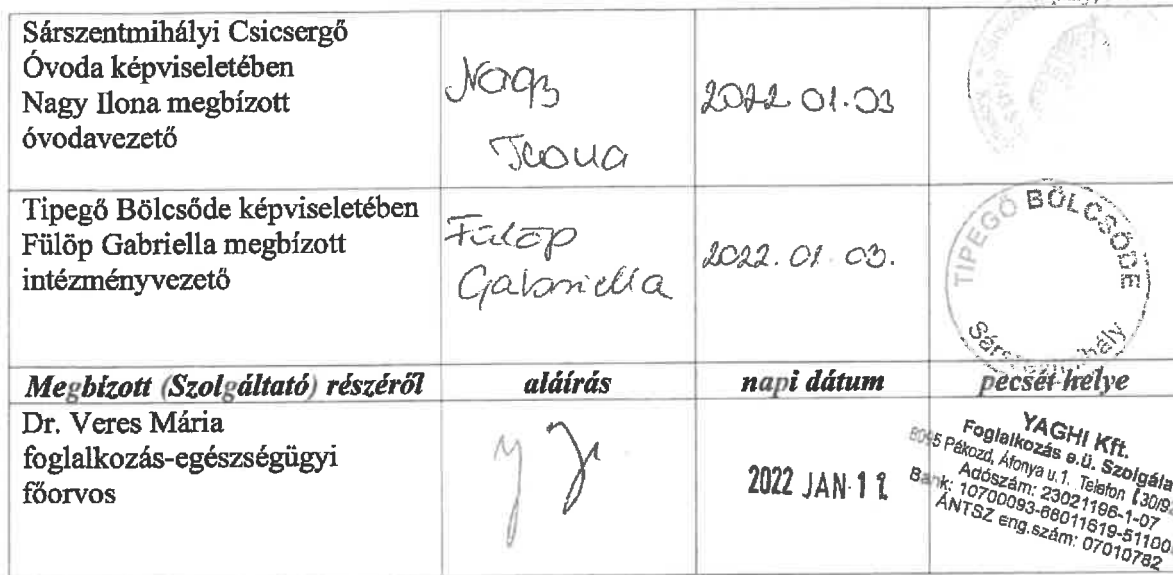 Sárszentmihályi Csicsergő
Óvoda képviseletében
Nagy Ilona megbízott
óvodavezető
Nagy
Ilona
2022.01.03
Tipegő Bölcsőde képviseletében
Fülöp Gabriella megbízott
intézményvezető
Fülöp
Gabriella
2022.01.03.
TIPEGŐ BÖLCSŐDE
Megbízott (Szolgáltató) részéről
aláírás
napi dátum
pecsét helye
Dr. Veres Mária
foglalkozás-egészségügyi
főorvos
2022 JAN
YAGHI Kft.
Foglalkozás e.ü. Szolgála
8095 Pákozd, Áfonya u.1. Telefon
Adószám: 23021196-1-07
Bank: 10700093-66011619-51100
ÁNTSZ eng.szám: 07010782